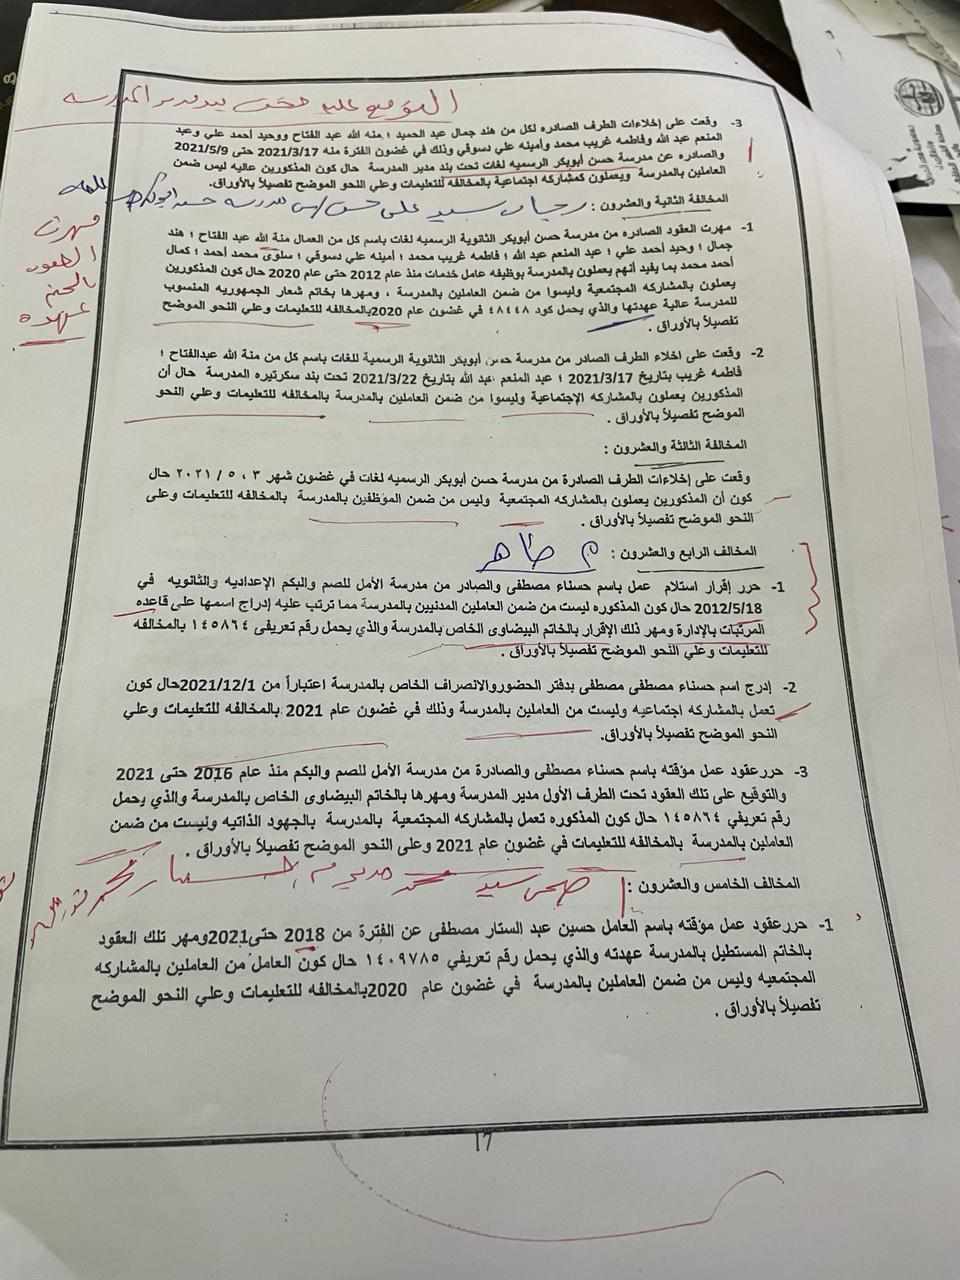 التوقيع عليه تحت بند مدير المدرسة
3- وقعت على إخلاءات الطرف الصادره لكل من هند جمال عبد الحميد ؛ منه الله عبد الفتاح ووحيد أحمد علي وعبد
المنعم عبد الله وفاطمه غريب محمد وأمينه علي دسوقي وذلك في غضون الفترة منه 2021/3/17 حتى 2021/5/9
والصادره عن مدرسة حسن أبوبكر الرسميه لغات تحت بند مدير المدرسة حال كون المذكورين عاليه ليس ضمن
العاملين بالمدرسة ويعملون كمشاركه اجتماعية بالمخالفه للتعليمات وعلي النحو الموضح تفصيلاً بالأوراق.
المخالفة الثانية والعشرون : رجاء سيد علي حسن مدرسة حسن ابوبكر
مهرت
العقود
بالختم
عهدة
1- مهرت العقود الصادره من مدرسة حسن أبوبكر الثانوية الرسميه لغات باسم كل من العمال منة الله عبد الفتاح ؛ هند
جمال ؛ وحيد أحمد علي ؛ عبد المنعم عبد الله ؛ فاطمه غريب محمد ؛ أمينه علي دسوقي ؛ سلوى محمد أحمد ؛ كمال
أحمد محمد بما يفيد أنهم يعملون بالمدرسة بوظيفه عامل خدمات منذ عام 2012 حتى عام 2020 حال كون المذكورين
يعملون بالمشاركه المجتمعية وليسوا من ضمن العاملين بالمدرسة ، ومهرها بخاتم شعار الجمهوريه المنسوب
للمدرسة عالية عهدتها والذي يحمل كود ٤٨٤٤٨ في غضون عام 2020بالمخالفه للتعليمات وعلي النحو الموضح
تفصيلاً بالأوراق .
2- وقعت على اخلاء الطرف الصادر من مدرسة حسن أبوبكر الثانوية الرسمية للغات باسم كل من منة الله عبدالفتاح ؛
فاطمه غريب بتاريخ 2021/3/17 ؛ عبد المنعم عبد الله بتاريخ 2021/3/22 تحت بند سكرتيره المدرسة حال أن
المذكورين يعملون بالمشاركه الإجتماعية وليسوا من ضمن العاملين بالمدرسة بالمخالفه للتعليمات وعلي النحو
الموضح تفصيلاً بالأوراق .
المخالفة الثالثة والعشرون :
وقعت على إخلاءات الطرف الصادرة من مدرسة حسن أبوبكر الرسميه لغات في غضون شهر ٣ ، ٥ / ٢٠٢١ حال
كون أن المذكورين يعملون بالمشاركه المجتمعية وليس من ضمن الموظفين بالمدرسة بالمخالفه للتعليمات وعلى
النحو الموضح تفصيلاً بالأوراق .
المخالف الرابع والعشرون : م طاهر
1- حرر إقرار استلام عمل باسم حسناء مصطفى والصادر من مدرسة الأمل للصم والبكم الإعداديه والثانويه في
2012/5/18 حال كون المذكوره ليست من ضمن العاملين المدنيين بالمدرسة مما ترتب عليه إدراج اسمها على قاعده
المرتبات بالإدارة ومهر ذلك الإقرار بالخاتم البيضاوى الخاص بالمدرسة والذي يحمل رقم تعريفى ١٤٥٨٦٤ بالمخالفه
للتعليمات وعلي النحو الموضح تفصيلاً بالأوراق .
2- إدرج اسم حسناء مصطفى مصطفى بدفتر الحضوروالانصراف الخاص بالمدرسة اعتباراً من 2021/12/1حال كون
تعمل بالمشاركه اجتماعيه وليست من العاملين بالمدرسة وذلك في غضون عام 2021 بالمخالفه للتعليمات وعلي
النحو الموضح تفصيلاً بالأوراق.
3- حررعقود عمل مؤقته باسم حسناء مصطفى والصادرة من مدرسة الأمل للصم والبكم منذ عام 2016 حتى 2021
والتوقيع على تلك العقود تحت الطرف الأول مدير المدرسة ومهرها بالخاتم البيضاوى الخاص بالمدرسة والذي يحمل
رقم تعريفي ١٤٥٨٦٤ حال كون المذكوره تعمل بالمشاركه المجتمعية بالمدرسة بالجهود الذاتيه وليست من ضمن
العاملين بالمدرسة بالمخالفه للتعليمات في غضون عام 2021 وعلى النحو الموضح تفصيلاً بالأوراق .
المخالف الخامس والعشرون : سيد
1- حررعقود عمل مؤقته باسم العامل حسين عبد الستار مصطفى عن الفترة من 2018 حتى2021ومهر تلك العقود
بالخاتم المستطيل بالمدرسة عهدته والذي يحمل رقم تعريفي ١٤٠٩٧٨٥ حال كون العامل من العاملين بالمشاركه
المجتمعيه وليس من ضمن العاملين بالمدرسة في غضون عام 2020بالمخالفه للتعليمات وعلي النحو الموضح
تفصيلاً بالأوراق .
17